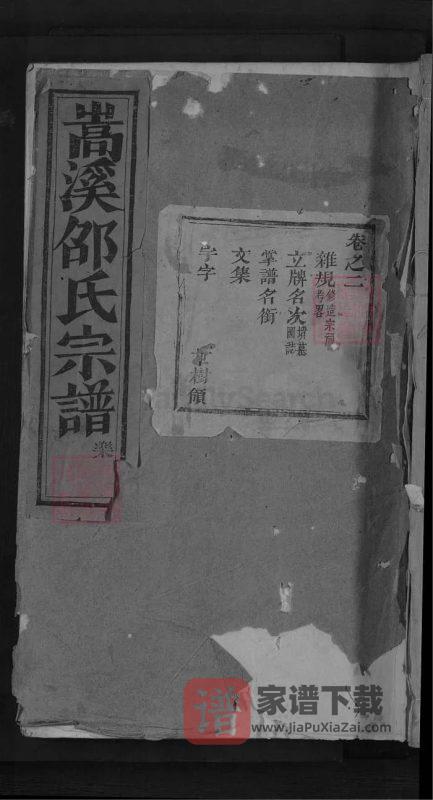 嵩溪邵氏宗譜
樂
卷之二
雜規 修造宗祠考畧
立牌名次 墳墓圖誌
掌譜名銜
文集
學字 樹領
FamilySearch
譜 家谱下载
www.JiaPuXiaZai.com